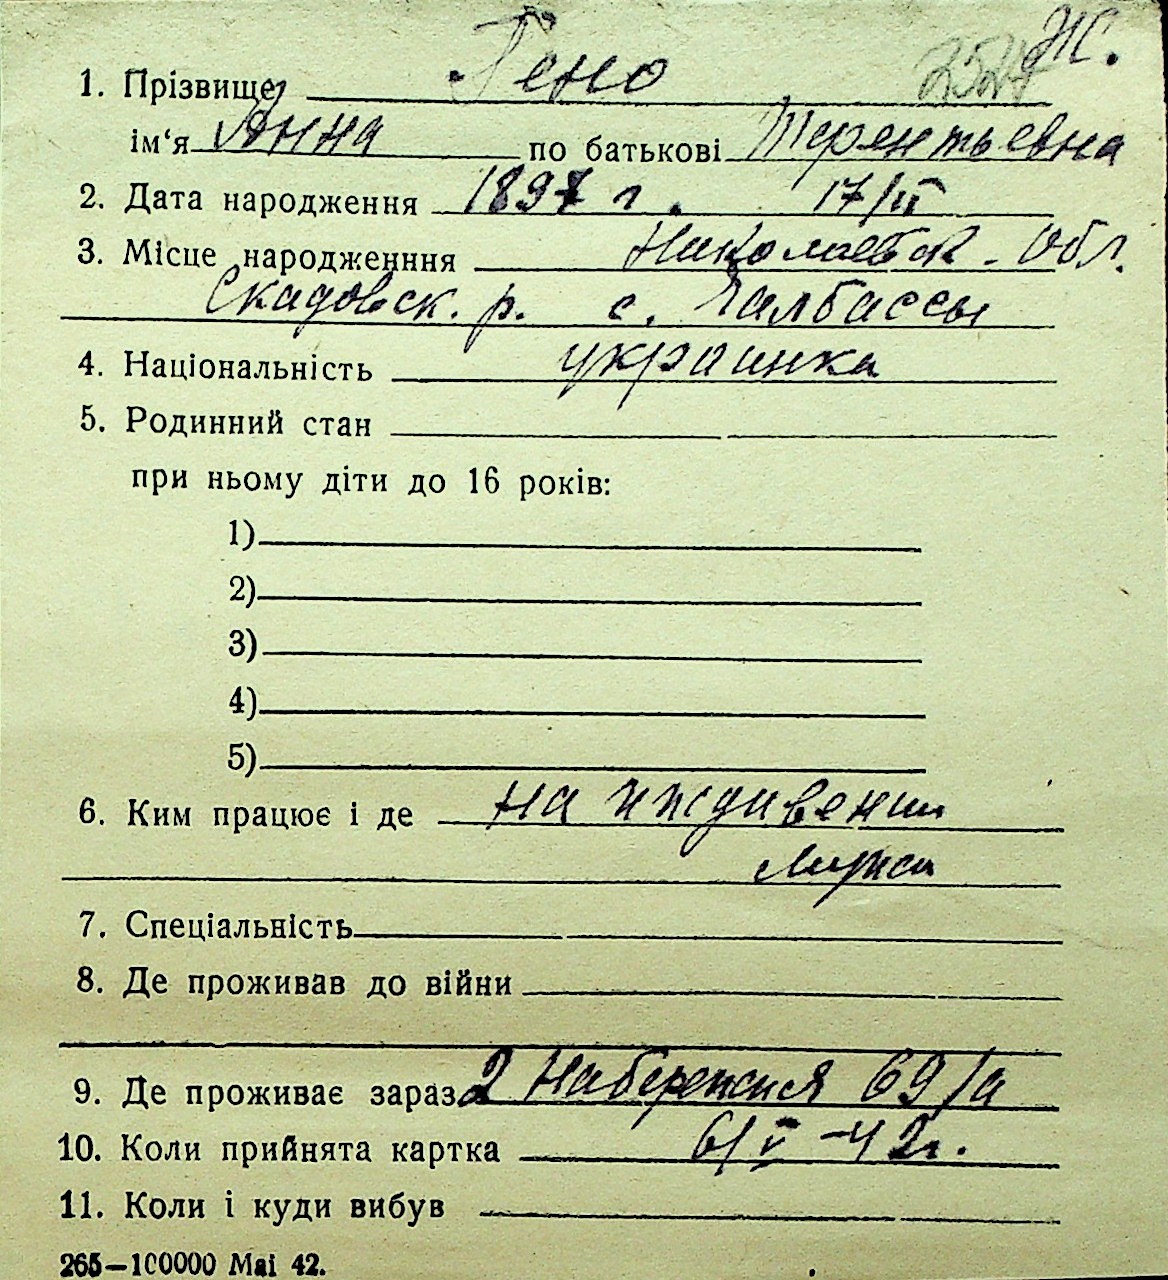 Ж.
1. Прізвище Гено
ім‘я Анна по батькові Терентьевна
2. Дата народження 1897 г. 17/II
3. Місце народженння Николаевск. Обл.
Скадовск. р. с. Чалбассы
4. Національність украинка
5. Родинний стан
при ньому діти до 16 років:
1)
2)
3)
4)
5)
6. Ким працює і де на иждивении
мужа
7. Спеціальність
8. Де проживав до війни
9. Де проживає зараз 2 Набережная 69/а
10. Коли прийнята картка 6/V-42г.
11. Коли і куди вибув
265—100000 Mai 42.